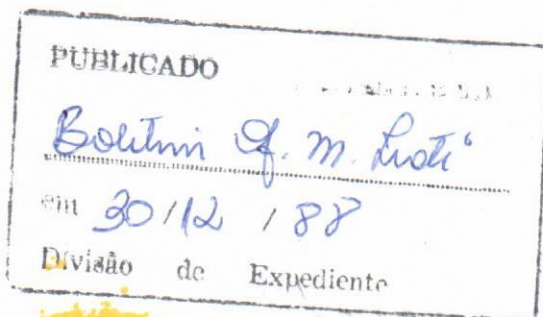 PUBLICADO
Boletim Of. M.
em 30/12/88
Divisão de Expediente